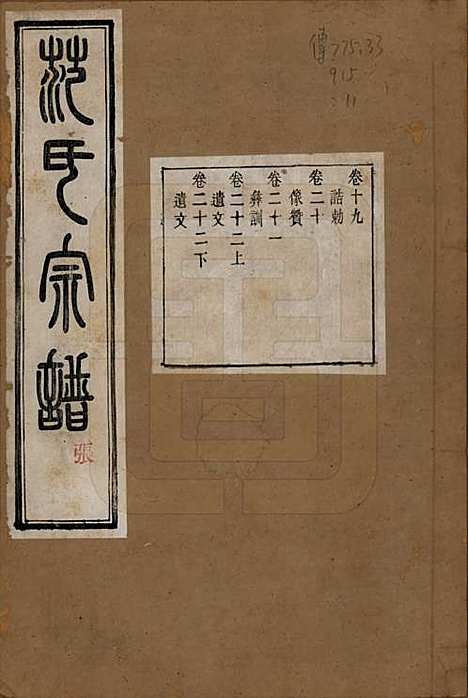 范氏宗譜
張
卷十九
誥勅
卷二十
像贊
卷二十一
彝訓
卷二十二上
遺文
卷二十二下
遺文
傳775.33
915
:11